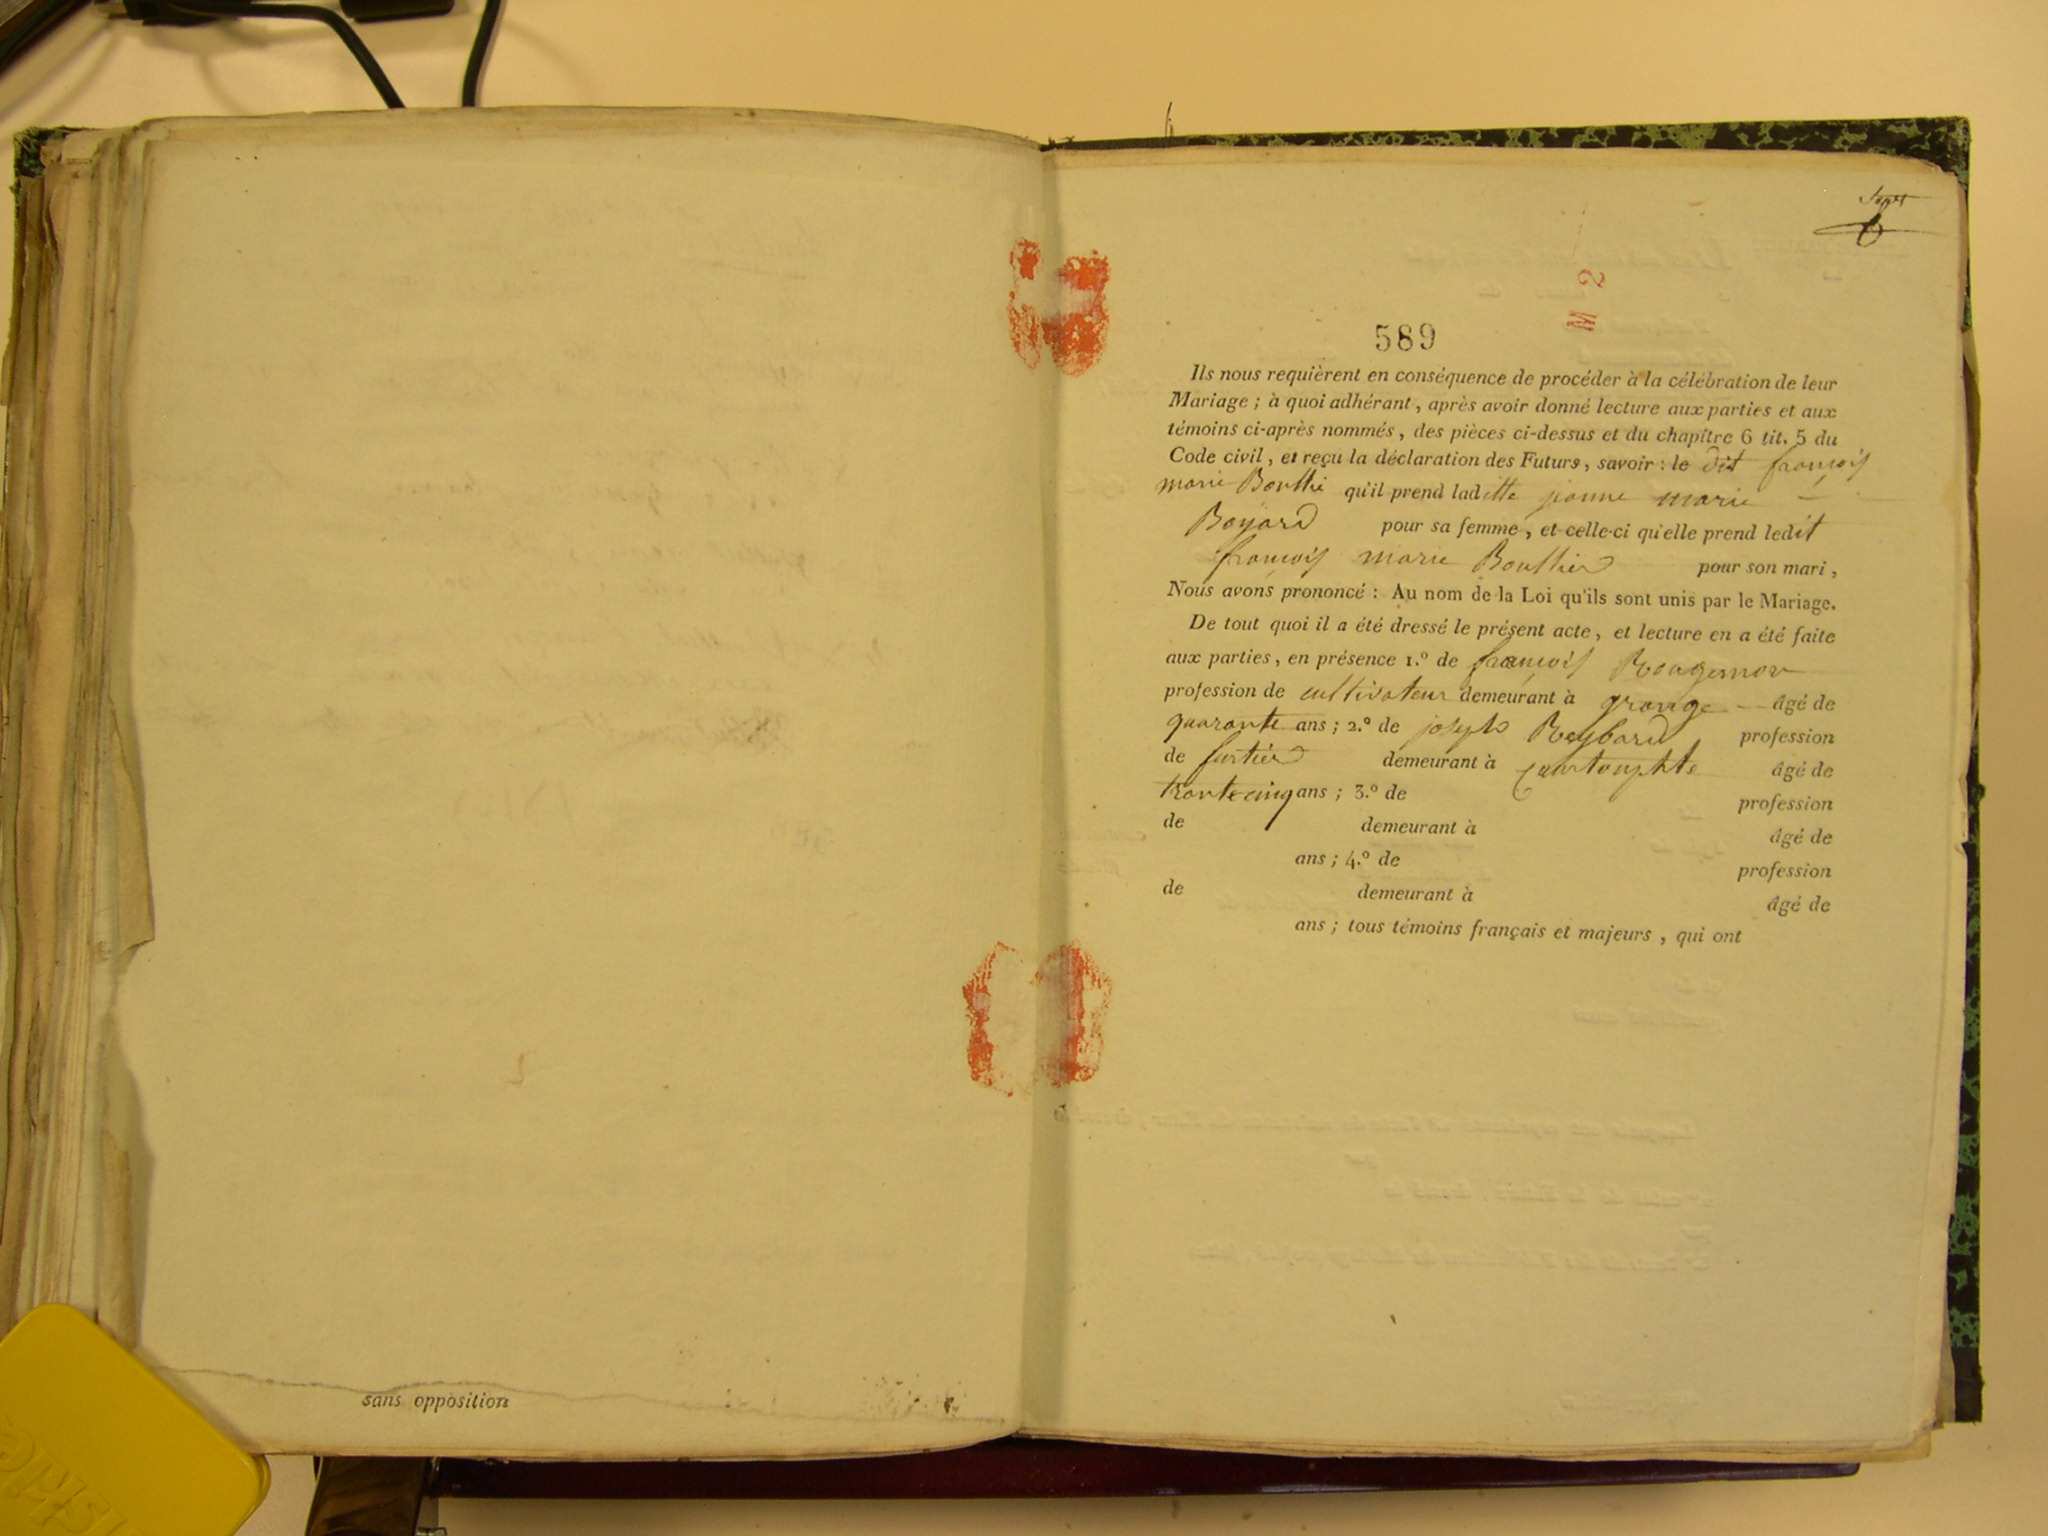 sans opposition
Sept
M 2
589
Ils nous requièrent en conséquence de procéder à la célébration de leur
Mariage ; à quoi adhérant, après avoir donné lecture aux parties et aux
témoins ci-après nommés, des pièces ci-dessus et du chapitre 6 tit. 5 du
Code civil, et reçu la déclaration des Futurs, savoir : le dit françois
marie Bouthie qu'il prend laditte jeanne marie
Boyard pour sa femme, et celle-ci qu'elle prend ledit
françois marie Bouthier pour son mari,
Nous avons prononcé : Au nom de la Loi qu'ils sont unis par le Mariage.
De tout quoi il a été dressé le présent acte, et lecture en a été faite
aux parties, en présence 1.º de françois Rougemon
profession de cultivateur demeurant à grange âgé de
quarante ans ; 2.º de joseph Reybard profession
de demeurant à âgé de
trante cinq ans ; 3.º de profession
de demeurant à âgé de
ans ; 4.º de profession
de demeurant à âgé de
ans ; tous témoins français et majeurs, qui ont